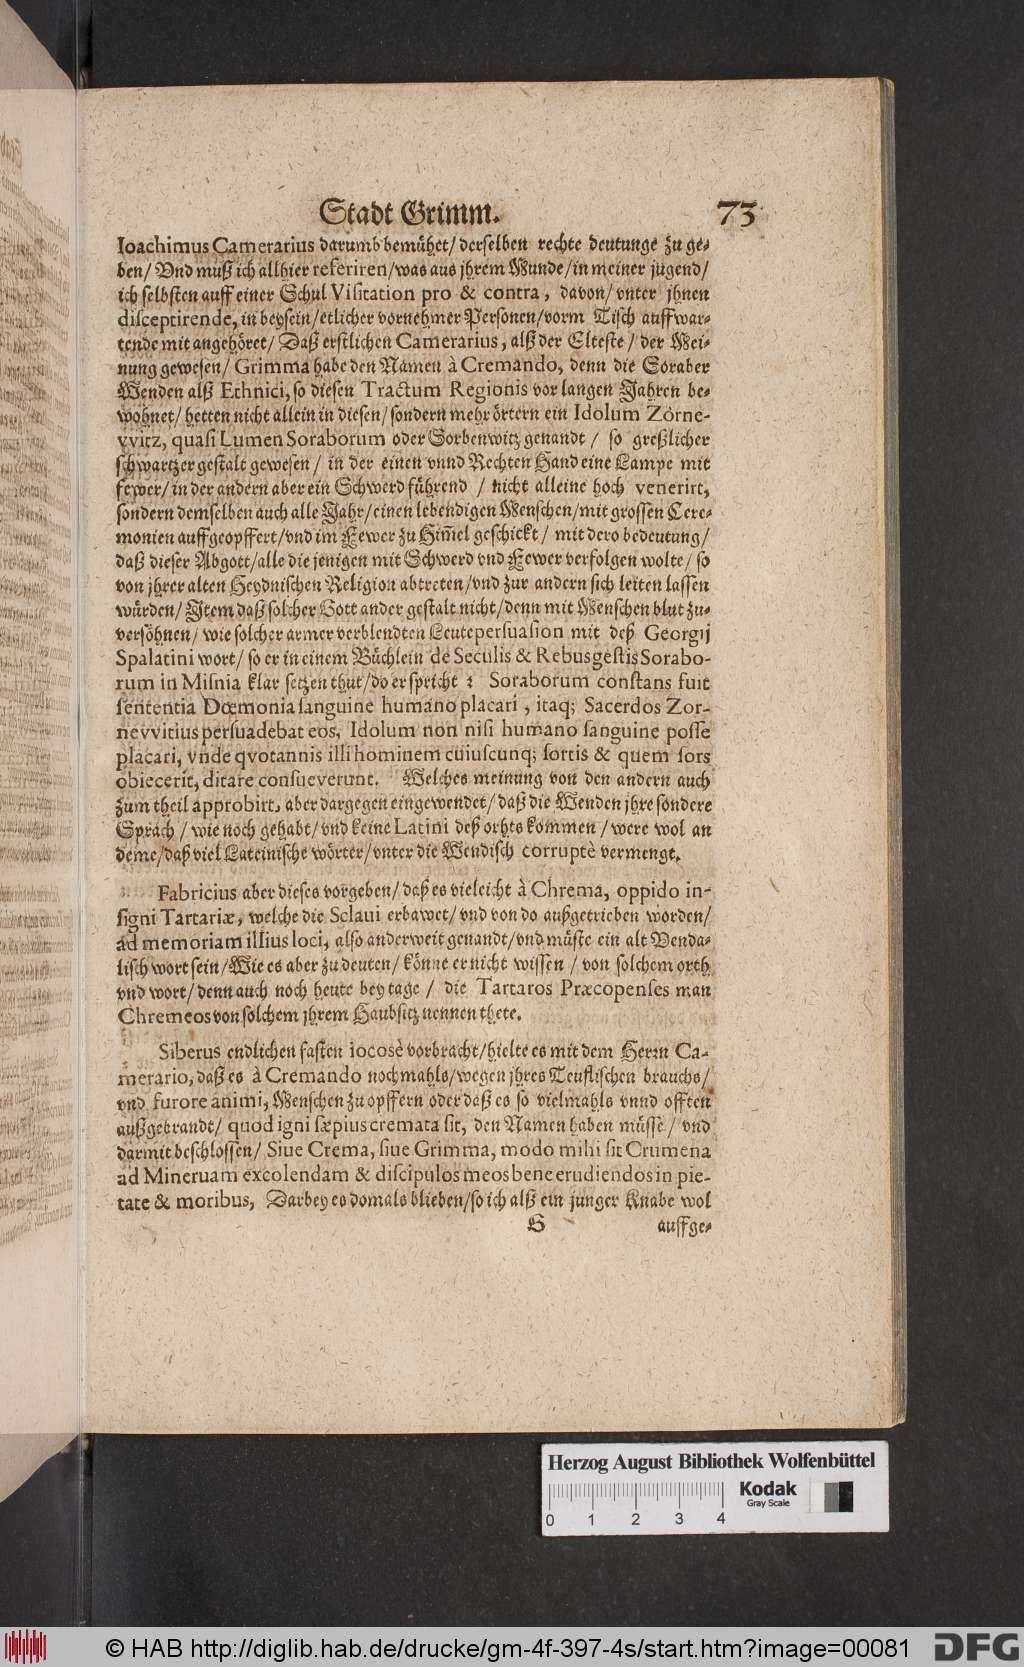 Stadt Grimm. 73
Ioachimus Camerarius darumb bemühet/ derselben rechte deutunge zu ge-
ben/ Vnd muß ich allhier referiren/ was aus jhrem Munde/ in meiner jugend/
ich selbsten auff einer Schul Visitation pro & contra, davon/ vnter jhnen
disceptirende, in beysein/ etlicher vornehmer Personen/ vorm Tisch auffwar-
tende mit angehöret/ Daß erstlichen Camerarius, alß der Elteste/ der Mei-
nung gewesen/ Grimma habe den Namen à Cremando, denn die Soraber
Wenden alß Ethnici, so diesen Tractum Regionis vor langen Jahren be-
wohnet/ hetten nicht allein in diesen/ sondern mehr örtern ein Idolum Zorne-
vvitz, quasi Lumen Soraborum oder Sorbenwitz genandt/ so greßlicher
schwartzer gestalt gewesen/ in der einen vnnd Rechten Hand eine Lampe mit
fewer/ in der andern aber ein Schwerd führend/ nicht alleine hoch venerirt,
sondern demselben auch alle Jahr/ einen lebendigen Menschen/ mit grossen Cere-
monien auffgeopffert/ vnd im Fewer zu Him̃el geschickt/ mit dero bedeutung/
daß dieser Abgott/ alle die jenigen mit Schwerd vnd Fewer verfolgen wolte/ so
von jhrer alten Heydnischen Religion abtreten/ vnd zur andern sich leiten lassen
würden/ Item daß solcher Gott ander gestalt nicht/ denn mit Menschen blut zu-
versöhnen/ wie solcher armer verblendten Leute persuasion mit deß Georgij
Spalatini wort/ so er in einem Büchlein de Seculis & Rebus gestis Sorabo-
rum in Misnia klar setzen thut/ do er spricht: Soraborum constans fuit
sententia Dœmonia sanguine humano placari, itaq; Sacerdos Zor-
nevvitius persuadebat eos, Idolum non nisi humano sanguine posse
placari, vnde qvotannis illi hominem cuiuscunq; sortis & quem sors
obiecerit, ditare consueverunt. Welches meinung von den andern auch
zum theil approbirt, aber dargegen eingewendet/ daß die Wenden jhre sondere
Sprach/ wie noch gehabt/ vnd keine Latini deß orhts kommen/ were wol an
deme/ daß viel Lateinische wörter/ vnter die Wendisch corruptè vermengt.
Fabricius aber dieses vorgeben/ daß es vieleicht à Chrema, oppido in-
signi Tartariæ, welche die Sclaui erbawet/ vnd von do außgetrieben worden/
ad memoriam illius loci, also anderweit genandt/ vnd müste ein alt Venda-
lisch wort sein/ Wie es aber zu deuten/ könne er nicht wissen/ von solchem orth
vnd wort/ denn auch noch heute bey tage/ die Tartaros Præcopenses man
Chremeos von solchem jhrem Haubsitz nennen thete.
Siberus endlichen fasten iocosè vorbracht/ hielte es mit dem Herrn Ca-
merario, daß es à Cremando nochmahls/ wegen jhres Teuflischen brauchs/
vnd furore animi, Menschen zu opffern oder daß es so vielmahls vnnd offten
außgebrandt/ quod igni sæpius cremata sit, den Namen haben müsse/ vnd
darmit beschlossen/ Siue Crema, siue Grimma, modo mihi sit Crumena
ad Mineruam excolendam & discipulos meos bene erudiendos in pie-
tate & moribus, Darbey es domals blieben/ so ich alß ein junger Knabe wol
S auffge-
Herzog August Bibliothek Wolfenbüttel
Kodak
Gray Scale
0 1 2 3 4
© HAB http://diglib.hab.de/drucke/gm-4f-397-4s/start.htm?image=00081 DFG